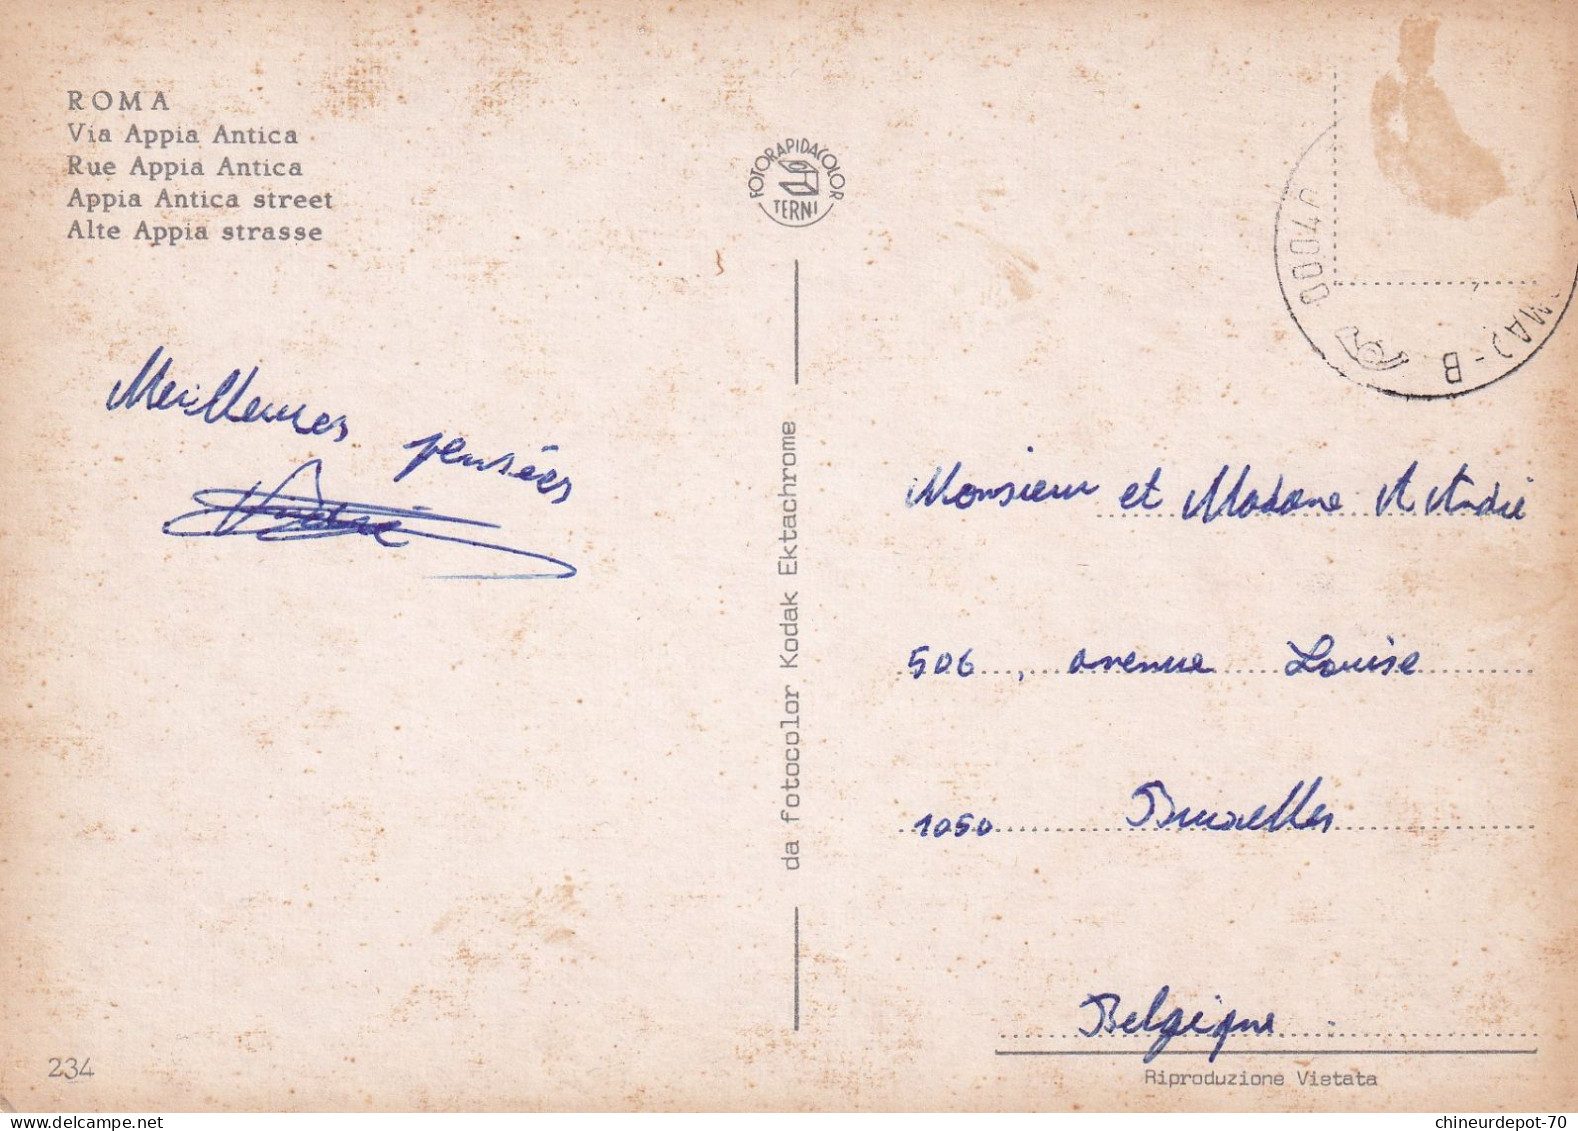 ROMA
Via Appia Antica
Rue Appia Antica
Appia Antica street
Alte Appia strasse
FOTORAPIDACOLOR
TERNI
00040
MA)-B
Meilleures pensées
André
da fotocolor Kodak Ektachrome
Monsieur et Madame A André
506, avenue Louise
1050 Bruxelles
Belgique
Riproduzione Vietata
234
chineurdepot-70